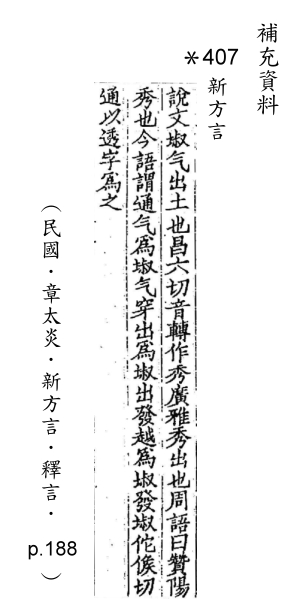 補充資料
＊407
新方言
說文埱气出土也昌六切音轉作秀廣雅秀出也周語曰贊陽
秀也今語謂通气為埱气穿出為埱出發越為埱發埱佗倏切
通以透字為之
（民國．章太炎．新方言．釋言．p.188）